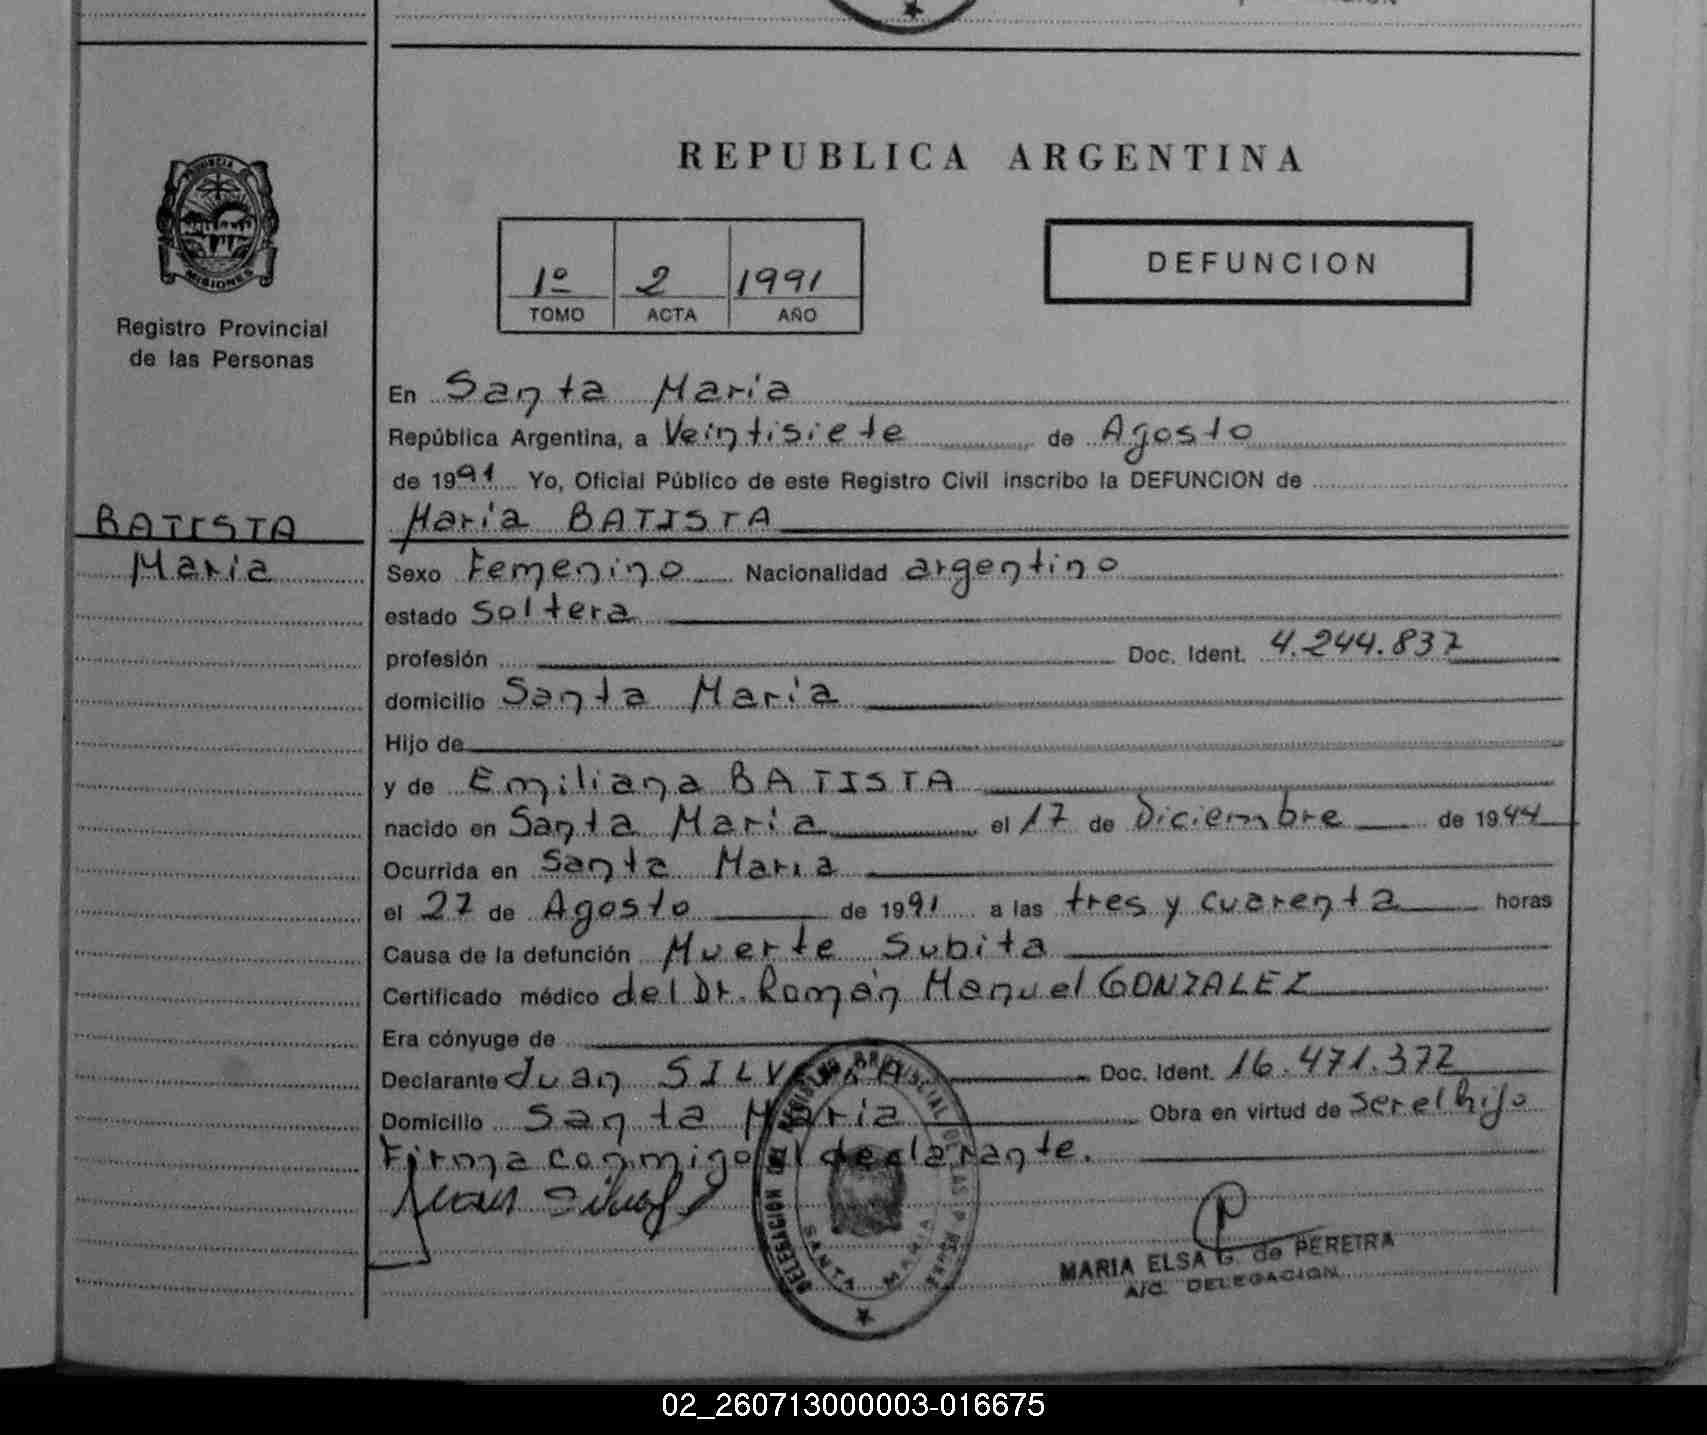 REPUBLICA ARGENTINA
PROVINCIA DE
MISIONES
Registro Provincial
de las Personas
1º 2 1991
TOMO ACTA AÑO
DEFUNCION
En Santa Maria
República Argentina, a Veintisiete de Agosto
de 1991 Yo, Oficial Público de este Registro Civil inscribo la DEFUNCION de
BATISTA
Maria
Maria BATISTA
Sexo Femenino Nacionalidad argentino
estado Soltera
profesión Doc. Ident. 4.244.837
domicilio Santa Maria
Hijo de
y de Emiliana BATISTA
nacido en Santa Maria el 17 de Diciembre de 1944
Ocurrida en Santa Maria
el 27 de Agosto de 1991 a las tres y cuarenta horas
Causa de la defunción Muerte Subita
Certificado médico del Dr. Román Manuel GONZALEZ
Era cónyuge de
Declarante Juan Doc. Ident. 16.471.372
Domicilio Santa Maria Obra en virtud de ser el hijo
Firma conmigo el declarante.
Juan
DELEGACION DEL REGISTRO PROVINCIAL DE LAS PERSONAS
SANTA MARIA
MARIA ELSA G. de PEREIRA
A/C. DELEGACION
02_260713000003-016675